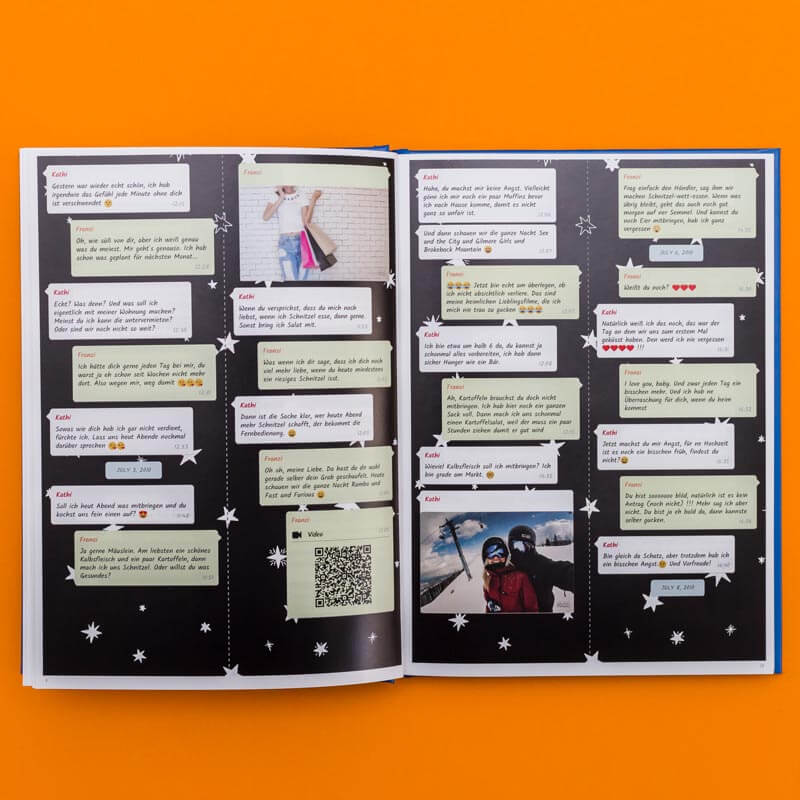 Kathi
Gestern war wieder echt schön, ich hab
irgendwie das Gefühl jede Minute ohne dich
ist verschwendet 😕
Franzi
Oh, wie süß von dir, aber ich weiß genau
was du meinst. Mir geht's genauso. Ich hab
schon was geplant für nächsten Monat...
Kathi
Echt? Was denn? Und was soll ich
eigentlich mit meiner Wohnung machen?
Meinst du ich kann die untervermieten?
Oder sind wir noch nicht so weit?
Franzi
Ich hätte dich gerne jeden Tag bei mir, du
warst ja eh schon seit Wochen nicht mehr
dort. Also wegen mir, weg damit 😘😘😘
Kathi
Sowas wie dich hab ich gar nicht verdient,
fürchte ich. Lass uns heut Abend nochmal
darüber sprechen 😘😘
JULY 3, 2018
Kathi
Soll ich heut Abend was mitbringen und du
kochst uns fein einen auf? 😍
Franzi
Ja gerne Mäuslein. Am liebsten ein schönes
Kalbsfleisch und ein paar Kartoffeln, dann
mach ich uns Schnitzel. Oder willst du was
Gesundes?
Franzi
Kathi
Wenn du versprichst, dass du mich noch
liebst, wenn ich Schnitzel esse, dann gerne.
Sonst bring ich Salat mit.
Franzi
Was wenn ich dir sage, dass ich dich noch
viel mehr liebe, wenn du heute mindestens
ein riesiges Schnitzel isst.
Kathi
Dann ist die Sache klar, wer heute Abend
mehr Schnitzel schafft, der bekommt die
Fernbedienung. 😄
Franzi
Oh oh, meine Liebe. Da hast du dir wohl
gerade selber dein Grab geschaufelt. Heute
schauen wir die ganze Nacht Rambo und
Fast and Furious 😄
Franzi
Video
Kathi
Haha, du machst mir keine Angst. Vielleicht
gönn ich mir noch ein paar Muffins bevor
ich nach Hause komme, damit es nicht
ganz so unfair ist.
Und dann schauen wir die ganze Nacht Sex
and the City und Gilmore Girls und
Brokeback Mountain 😄
Franzi
😂😂😂 Jetzt bin echt am überlegen, ob
ich nicht absichtlich verliere. Das sind
meine heimlichen Lieblingsfilme, die ich
mich nie trau zu gucken 😂😂😂
Kathi
Ich bin etwa um halb 6 da, du kannst ja
schonmal alles vorbereiten, ich hab dann
sicher Hunger wie ein Bär.
Franzi
Ah, Kartoffeln brauchst du doch nicht
mitbringen. Ich hab hier noch ein ganzen
Sack voll. Dann mach ich uns schonmal
einen Kartoffelsalat, weil der muss ein paar
Stunden ziehen damit er gut wird
Kathi
Wieviel Kalbsfleisch soll ich mitbringen? Ich
bin grade am Markt.
Kathi
Franzi
Frag einfach den Händler, sag ihm wir
machen Schnitzel-wett-essen. Wenn was
übrig bleibt, geht das auch noch gut
morgen auf ner Semmel. Und kannst du
noch Eier mitbringen, hab ich ganz
vergessen
JULY 6, 2018
Franzi
Weißt du noch? ❤❤❤
Kathi
Natürlich weiß ich das noch, das war der
Tag an dem wir uns zum ersten Mal
geküsst haben. Den werd ich nie vergessen
❤❤❤❤ !!!
Franzi
I love you, baby. Und zwar jeden Tag ein
bisschen mehr. Und ich hab ne
Überraschung für dich, wenn du heim
kommst
Kathi
Jetzt machst du mir Angst, für ne Hochzeit
ist es noch ein bisschen früh, findest du
nicht?
Franzi
Du bist sooooooo blöd, natürlich ist es kein
Antrag (noch nicht) !!! Mehr sug ich aber
nicht. Du bist ja eh bald da, dann kannste
selber gucken.
Kathi
Bin gleich da Schatz, aber trotzdem hab ich
ein bisschen Angst. Und Vorfreude!
JULY 8, 2018